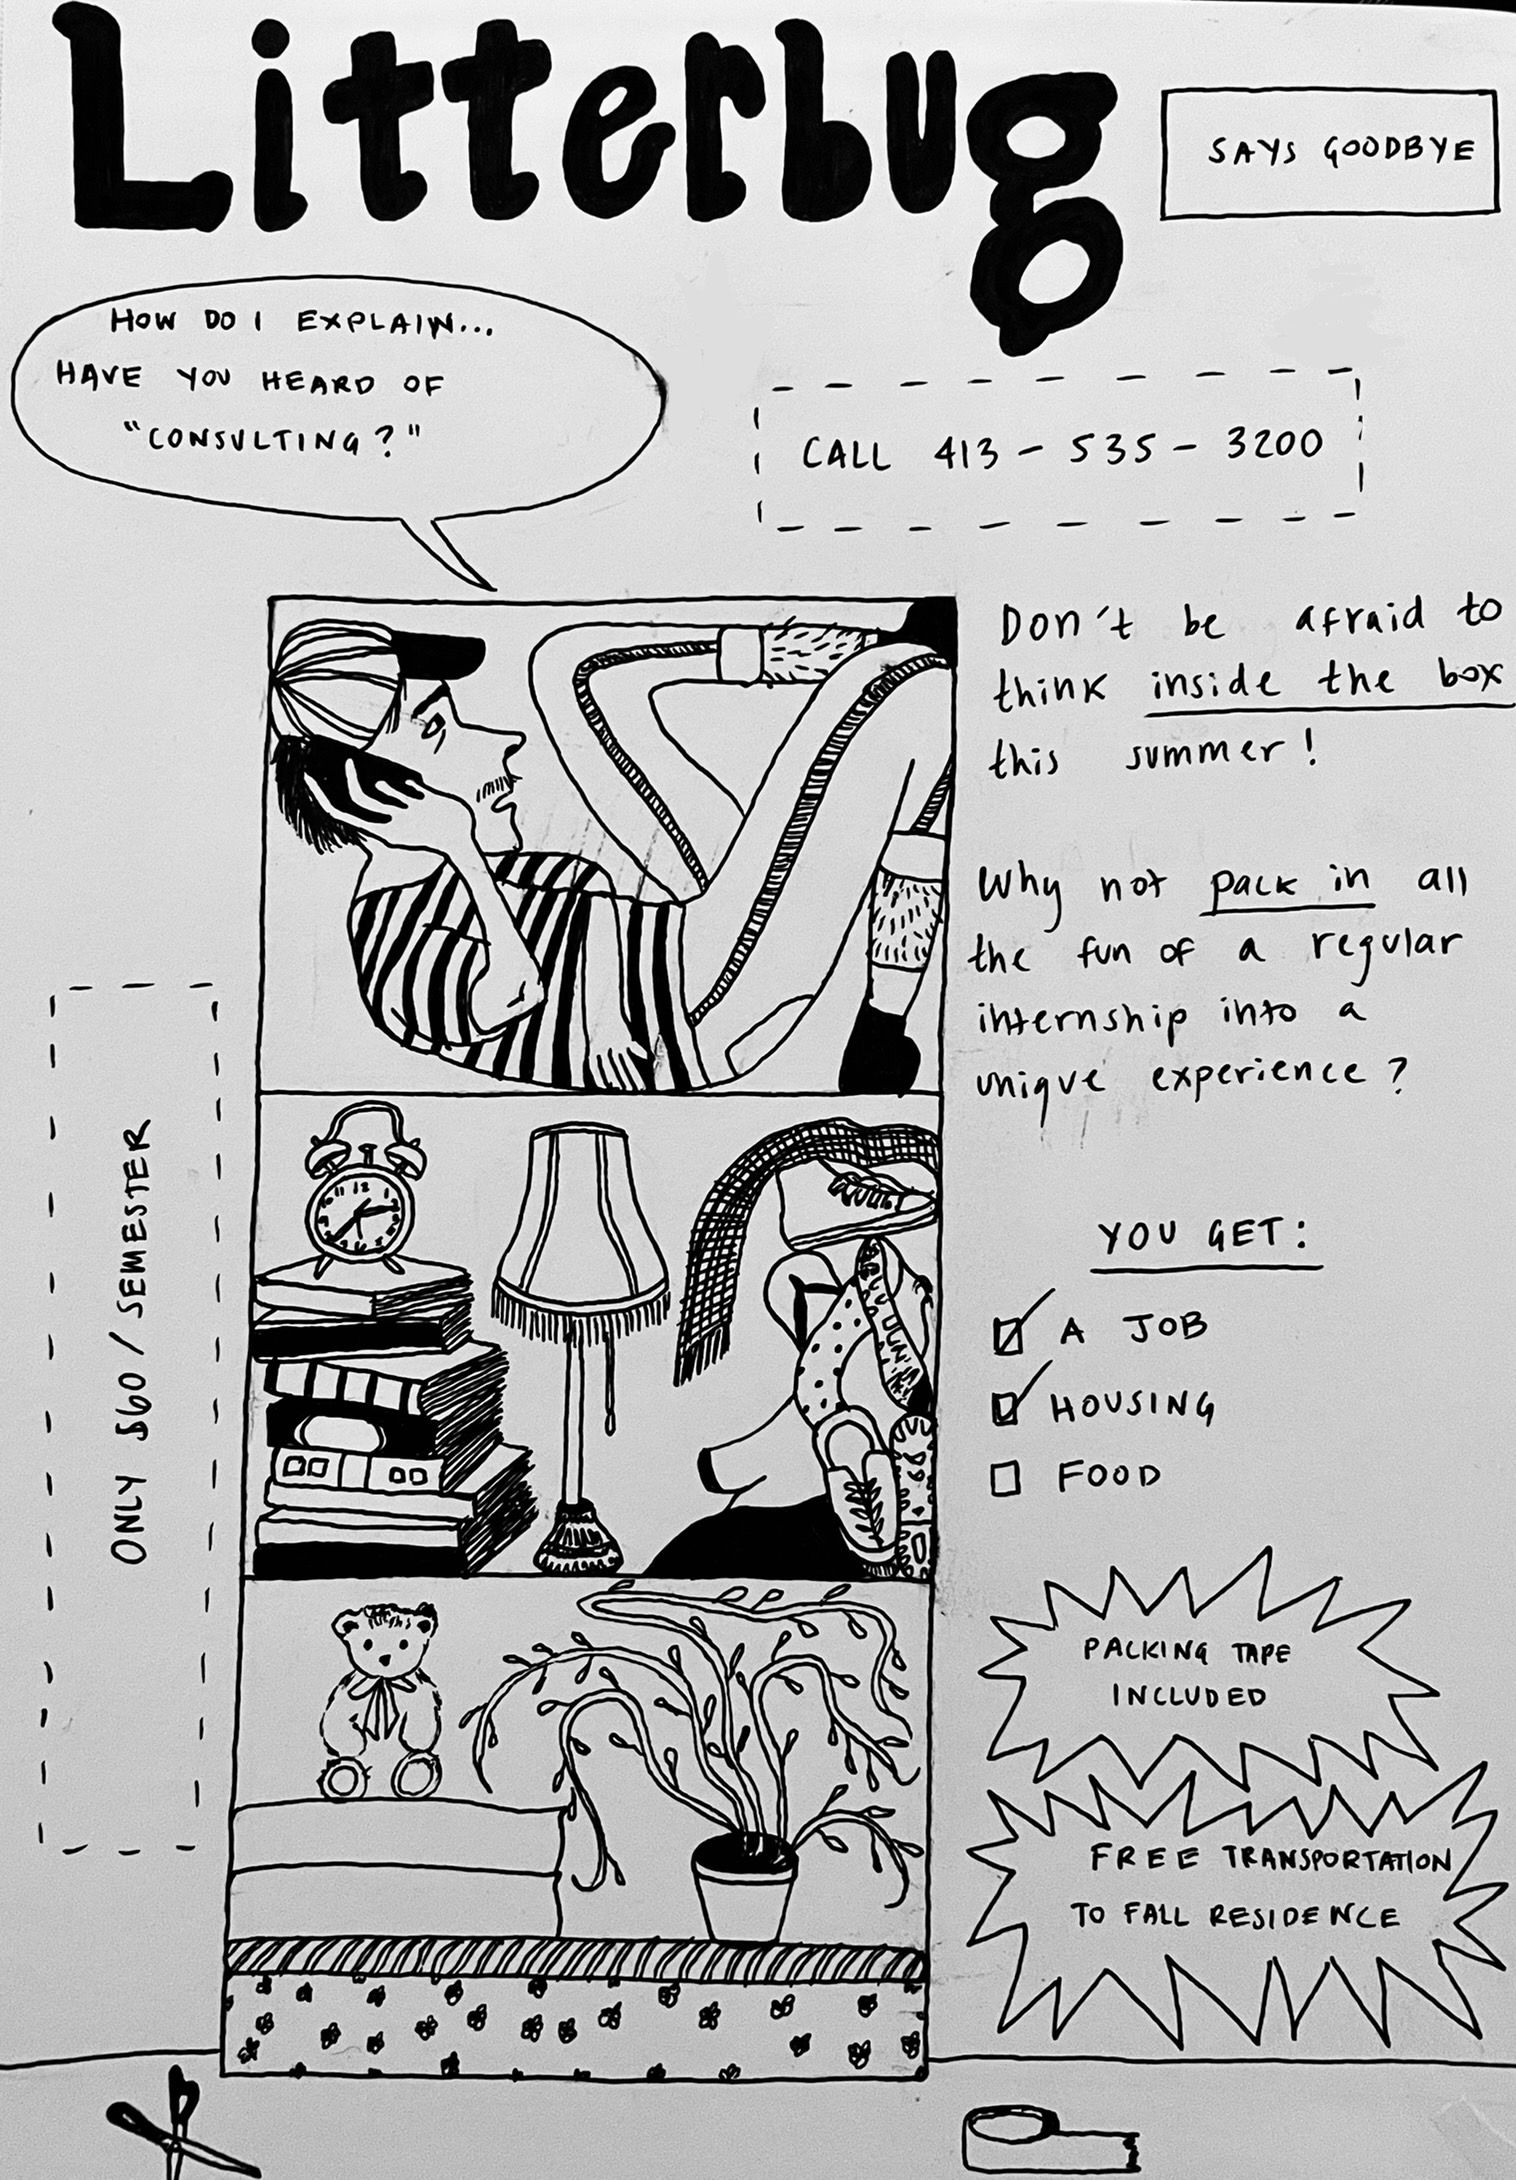 Litterbug
SAYS GOODBYE
HOW DO I EXPLAIN...
HAVE YOU HEARD OF
"CONSULTING?"
CALL 413-535-3200
Don't be afraid to
think inside the box
this summer!
Why not pack in all
the fun of a regular
internship into a
unique experience?
ONLY $60/SEMESTER
YOU GET:
A JOB
HOUSING
FOOD
PACKING TAPE
INCLUDED
FREE TRANSPORTATION
TO FALL RESIDENCE